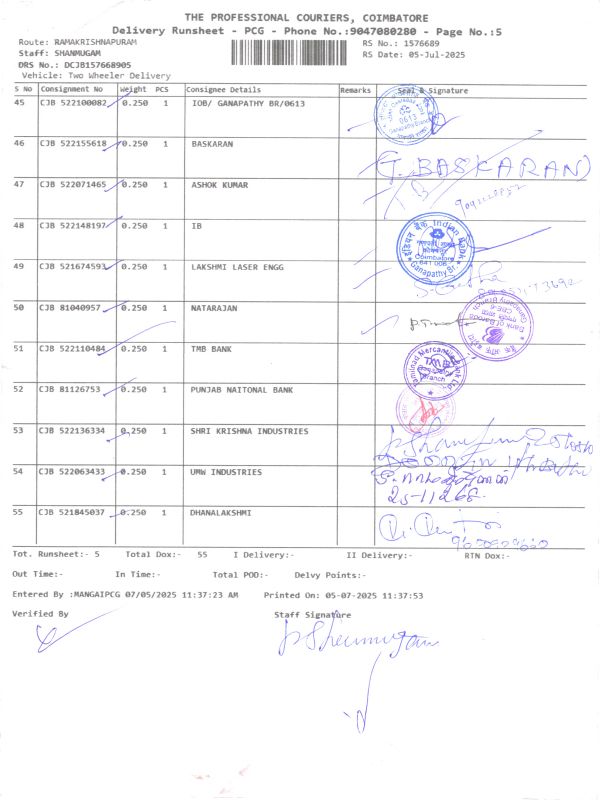 THE PROFESSIONAL COURIERS, COIMBATORE
Delivery Runsheet - PCG - Phone No.:9047080280 - Page No.:5
Route: RAMAKRISHNAPURAM RS No.: 1576689
Staff: SHANMUGAM RS Date: 05-Jul-2025
DRS No.: DCJB157668905
Vehicle: Two Wheeler Delivery
S No Consignment No Weight PCS Consignee Details Remarks Seal & Signature
45 CJB 522100082 0.250 1 IOB/ GANAPATHY BR/0613
0613
Ganapathy Branch
46 CJB 522155618 0.250 1 BASKARAN
(T. BASKARAN)
47 CJB 522071465 0.250 1 ASHOK KUMAR
48 CJB 522148197 0.250 1 IB
इंडियन बैंक Indian Bank
Coimbatore
641 006
Ganapathy Br.
49 CJB 521674593 0.250 1 LAKSHMI LASER ENGG
50 CJB 81040957 0.250 1 NATARAJAN
Bank of Baroda
Ganapathy Branch
CBE-6
51 CJB 522110484 0.250 1 TMB BANK
Tamilnad Mercantile Bank Ltd.
TMB
Branch
52 CJB 81126753 0.250 1 PUNJAB NAITONAL BANK
53 CJB 522136334 0.250 1 SHRI KRISHNA INDUSTRIES
54 CJB 522063433 0.250 1 UMW INDUSTRIES
55 CJB 521845037 0.250 1 DHANALAKSHMI
Tot. Runsheet:- 5 Total Dox:- 55 I Delivery:- II Delivery:- RTN Dox:-
Out Time:- In Time:- Total POD:- Delvy Points:-
Entered By :MANGAIPCG 07/05/2025 11:37:23 AM Printed On: 05-07-2025 11:37:53
Verified By Staff Signature
P Shanmugam